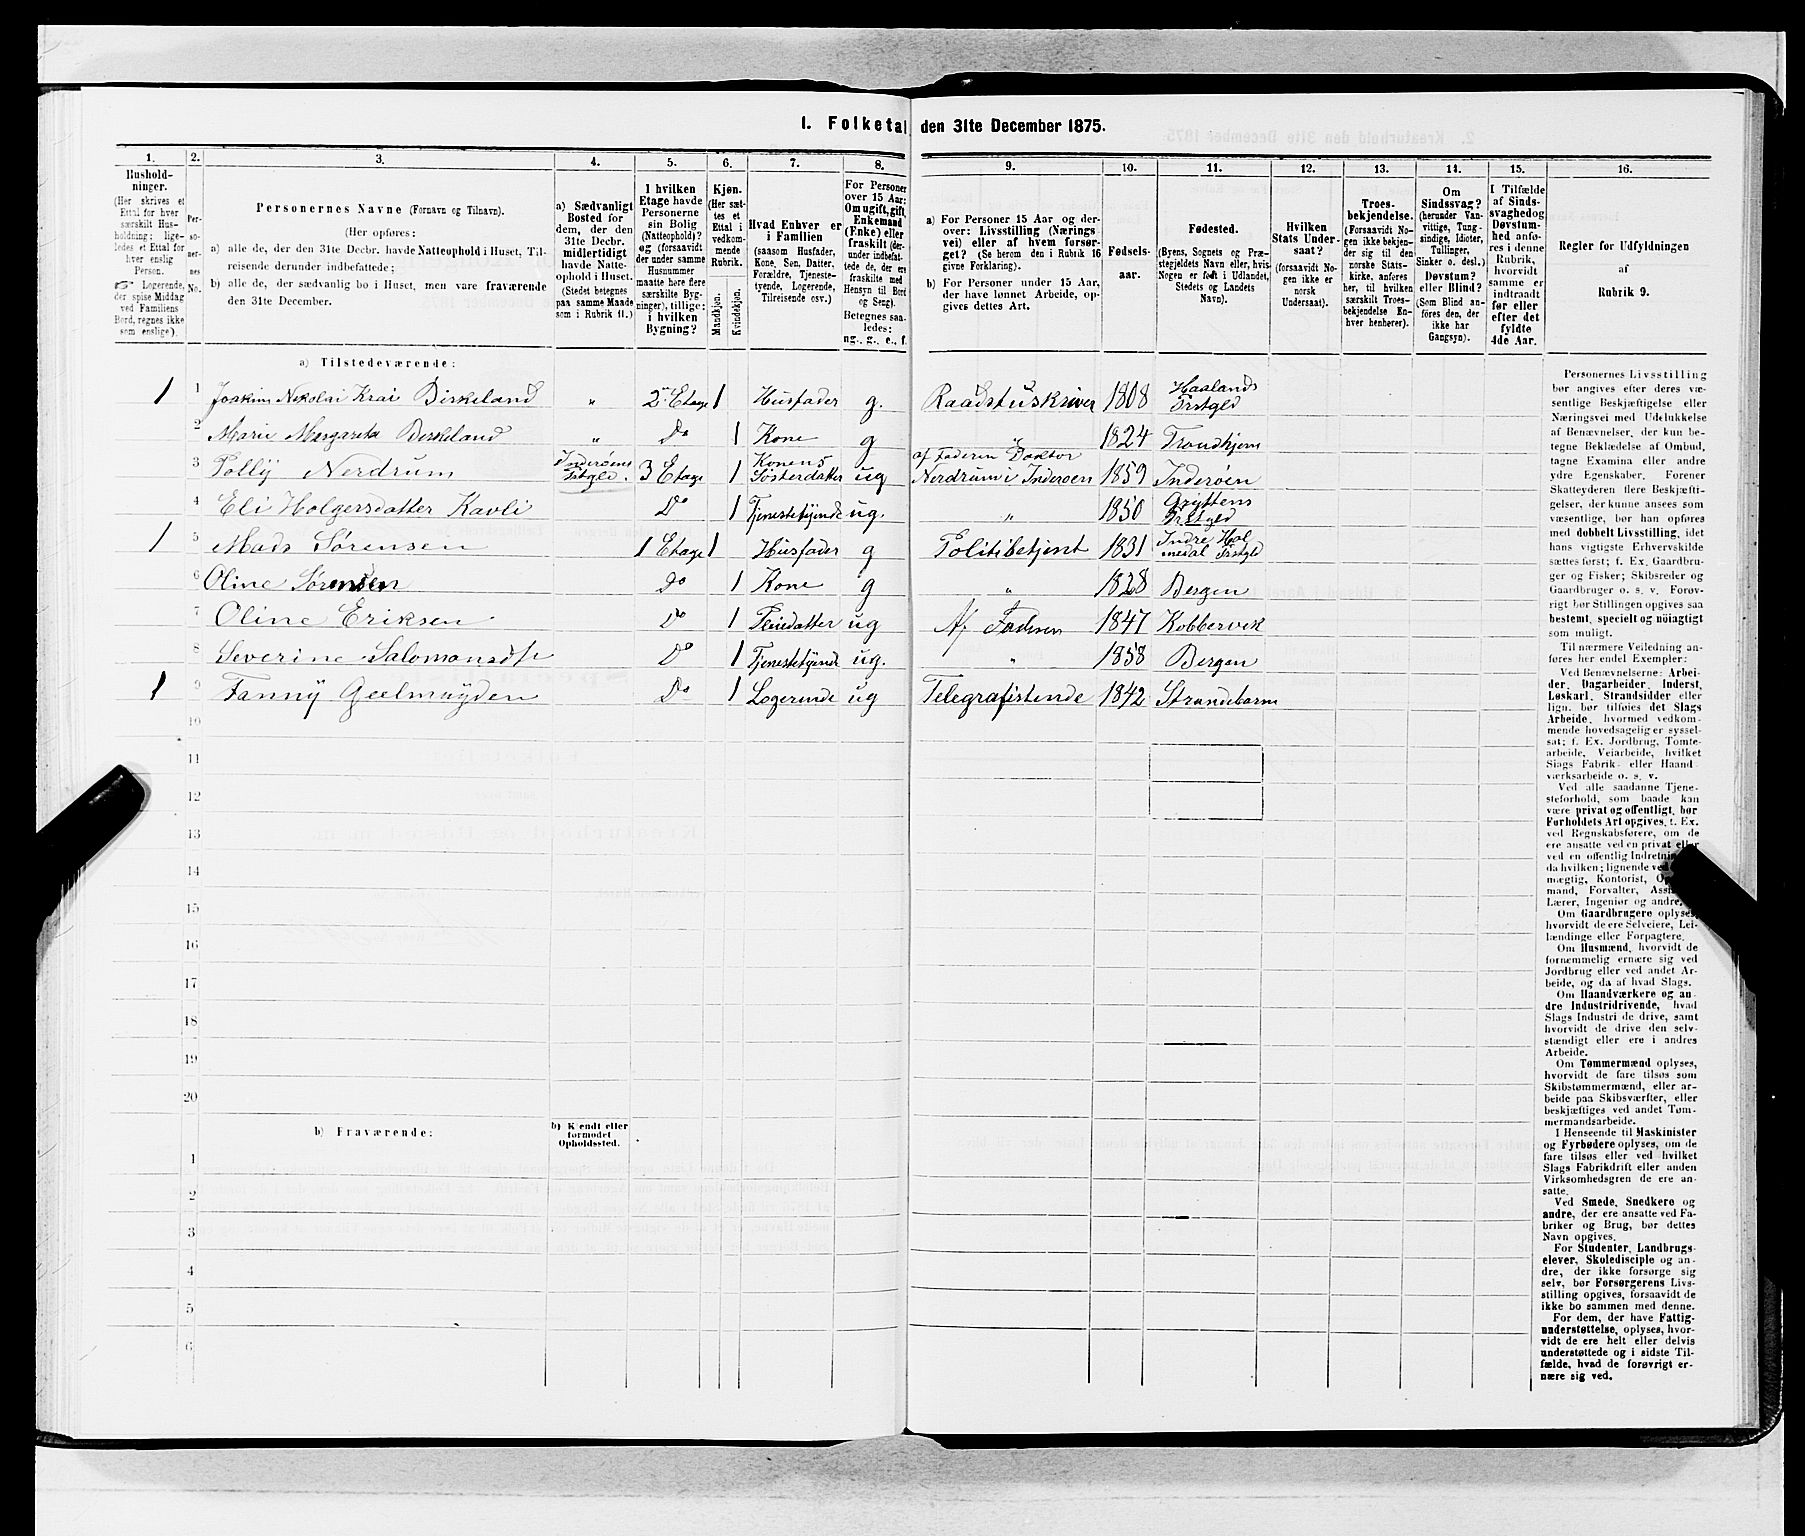 1. Folketal den 31te December 1875.
1. 2. 3. 4. 5. 6. 7. 8. 9. 10. 11. 12. 13. 14. 15. 16.
Hushold-
ninger.
(Her skrives et
Ettal for hver
særskilt Hus-
holdning; lige-
ledes et Ettal for
hver enslig
Person.
Logerende,
der spise Middag
ved Familiens
Bord, regnes ikke
som enslige).
Per-
so-
ner-
nes
No.
Personernes Navne (Fornavn og Tilnavn).
(Her opføres:
a) alle de, der den 31te Decbr. havde Natteophold i Huset, Til-
reisende derunder indbefattede;
b) alle de, der sædvanlig bo i Huset, men vare fraværende
den 31te December.
a) Sædvanligt
Bosted for
dem, der den
31te Decbr.
midlertidigt
havde Natte-
ophold i Huset.
(Stedet betegnes
paa samme Maade
som i Rubrik 11.)
I hvilken
Etage havde
Personerne
sin Bolig
(Natteophold)?
og (forsaavidt
der under samme
Husnummer
maatte høre flere
særskilte Byg-
ninger), tillige:
i hvilken
Bygning?
Kjøn.
(Her sæt-
tes et
Ettal i
vedkom-
mende
Rubrik.
Mandkjøn.
Kvindekjøn.
Hvad Enhver er
i Familien
(saasom Husfader,
Kone, Søn, Datter,
Forældre, Tjeneste-
tyende, Logerende,
Tilreisende osv.)
For Personer
over 15 Aar:
Om ugift, gift,
Enkemand
(Enke) eller
fraskilt (der-
under indbefat-
tede de, der ere
fraskilte med
Hensyn til Bord
og Seng).
Betegnes saa-
ledes:
ug., g., e., f.
a) For Personer 15 Aar og der-
over: Livsstilling (Nærings-
vei) eller af hvem forsør-
get? (Se herom den i Rubrik 16
givne Forklaring).
b) For Personer under 15 Aar,
der have lønnet Arbeide, op-
gives dettes Art.
Fødsels-
aar.
Fødested.
(Byens, Sognets og Præ-
stegjeldets Navn eller, hvis
Nogen er født i Udlandet,
Stedets og Landets
Navn).
Hvilken
Stats Under-
saat?
(forsaavidt No-
gen ikke er
norsk
Undersaat).
Troes-
bekjendelse.
(Forsaavidt No-
gen ikke bekjen-
der sig til den
norske Stats-
kirke, anføres
her, til hvilken
særskilt Troes-
bekjendelse En-
hver henhører).
Om
Sindssvag?
(herunder Van-
vittige, Tung-
sindige, Idioter,
Tullinger,
Sinker o. desl.)
Døvstum?
eller Blind?
(Som Blind an-
føres den, der
ikke har
Gangsyn).
I Tilfælde
af Sinds-
svaghed og
Døvstum-
hed anfø-
res i denne
Rubrik,
hvorvidt
samme er
indtraadt
før eller
efter det
fyldte
4de Aar.
Regler for Udfyldningen
af
Rubrik 9.
a) Tilstedeværende:
1 1 Joakim Nikolai Krai Birkeland " 2 Etage 1 Husfader g. Raadstuskriver 1808 Haalands Prstgld
2 Marie Margareta Birkeland " Do 1 Kone g " 1824 Trondhjem
3 Polly Nerdrum Inderøens Prstgld. 3 Etage 1 Konens Søsterdatter ug af Faderen Doktor Nerdrum i Inderøen 1859 Inderøen
4 Eli Holgersdatter Kavli Do 1 Tjenestetyende ug. " 1850 Gryttens Prstgld
1 5 Mads Sørensen 1 Etage 1 Husfader g Politibetjent 1831 Indre Hol medal Prstgld
6 Oline Sørensen Do 1 Kone g " 1828 Bergen
7 Oline Eriksen Do 1 Pleiedatter ug Af Faderen 1847 Kobbervik
8 Severine Salomonsdtr Do 1 Tjenestetyende ug. " 1858 Bergen
1 9 Fanny Geelmuyden Do 1 Logerende ug Telegrafistinde 1842 Strandebarm
10
11
12
13
14
15
16
17
18
19
20
b) Fraværende:
b) Kjendt eller
formodet
Opholdssted.
1
2
3
4
5
6
Personernes Livsstilling
bør angives efter deres væ-
sentlige Beskjæftigelse eller
Næringsvei med Udelukkelse
af Benævnelser, der kun be-
tegne Beklædelse af Ombud,
tagne Examina eller andre
ydre Egenskaber. Forener
Skatteyderen flere Beskjæfti-
gelser, der kunne ansees som
væsentlige, bør han opføres
med dobbelt Livsstilling, idet
hans vigtigste Erhvervskilde
sættes først; f. Ex. Gaardbru-
ger og Fisker; Skibsreder og
Gaardbruger o. s. v. Forøv-
rigt bør Stillingen opgives saa
bestemt, specielt og nøiagtigt
som muligt.
Til nærmere Veiledning an-
føres her endel Exempler:
Ved Benævnelserne: Arbei-
der, Dagarbeider, Inderst,
Løskarl, Strandsidder eller
lign. bør tilføies det Slags
Arbeide, hvormed vedkom-
mende hovedsagelig er syssel-
sat; f. Ex. Jordbrug, Tomte-
arbeide, Veiarbeide, hvilket
Slags Fabrik- eller Haand-
værksarbeide o. s. v.
Ved alle saadanne Tjene-
steforhold, som baade kan
være privat og offentligt, bør
Forholdets Art opgives, f. Ex.
ved Regnskabsførere, om de
ere ansatte ved en privat eller
ved en offentlig Indretning
da hvilken; lignende ved
mægtig, Kontorist,
mand, Forvalter,
Lærer, Ingeniør og andre.
Om Gaardbrugere oplyses,
hvorvidt de ere Selveiere, Lei-
lændinge eller Forpagtere.
Om Husmænd, hvorvidt de
fornemmelig ernære sig ved
Jordbrug eller ved andet Ar-
beide, og da af hvad Slags.
Om Haandværkere og an-
dre Industridrivende, hvad
Slags Industri de drive, samt
hvorvidt de drive den selv-
stændigt eller ere i andres
Arbeide.
Om Tømmermænd oplyses,
hvorvidt de fare tilsøs som
Skibstømmermænd, eller ar-
beide paa Skibsværfter, eller
beskjæftiges ved andet Tøm-
mermandsarbeide.
I Henseende til Maskinister
og Fyrbødere oplyses, om de
fare tilsøs eller ved hvilket
Slags Fabrikdrift eller anden
Virksomhedsgren de ere an-
satte.
Ved Smede, Snedkere og
andre, der ere ansatte ved Fa-
briker og Brug, bør dettes
Navn opgives.
For Studenter, Landbrugs-
elever, Skoledisciple og an-
dre, der ikke forsørge sig
selv, bør Forsørgerens Livs-
stilling opgives, forsaavidt de
ikke bo sammen med denne.
For dem, der have Fattig-
understøttelse, oplyses, hvor-
vidt de ere helt eller delvis
understøttede og i sidste Til-
fælde, hvad de forøvrigt er-
nære sig ved.